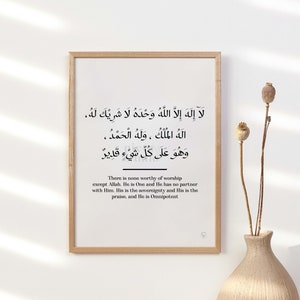 لَا إِلٰهَ إِلَّا اللهُ وَحْدَهُ لَا شَرِيْكَ لَهُ،
الهُ المُلْكُ ، وَلِهُ الْحَمْدُ ،
وَهُوَ عَلَى كُلِّ شَيْءٍ قَدِيْرٌ
There is none worthy of worship
except Allah. He is One and He has no partner
with Him. His is the sovereignty and His is the
praise, and He is Omnipotent